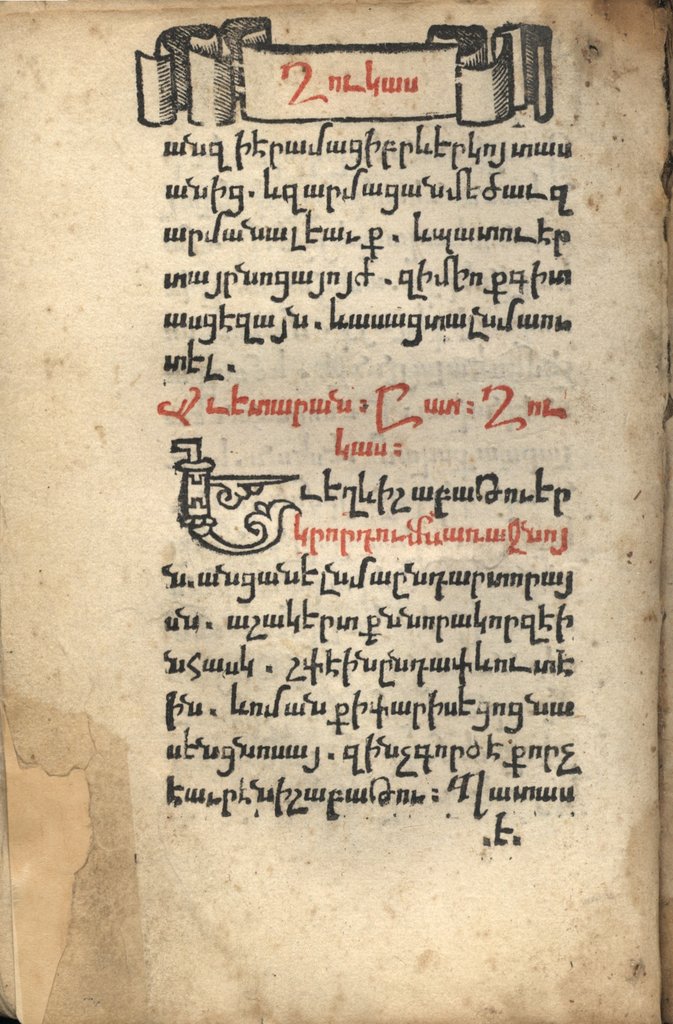 Ղուկաս
անզի էր ամաց իբրև երկոյտաս
անից. և զարմացան մեծաւ զ
արմանալեաւք. և պատուէր
տայր նոցա յոյժ. զի մի ոք գիտ
ասցէ զայն. և ասաց տալ նմա ու
տել.
Աւետարան: Ըստ: Ղու
կաս:
Եւ եղև ի շաբաթու եր
կրորդում առաջնոյ
ն. անցանել նմա ընդ արտորայ
սն. աշակերտքն նորա կորզէի
ն հասկ. շփէին ընդ ափ և ուտէ
ին. և ոմանք ի փարիսեցոցն ա
սեն ցնոսա. զինչ գործէք որ չ
է աւրէն ի շաբաթու: Պատաս
.է.